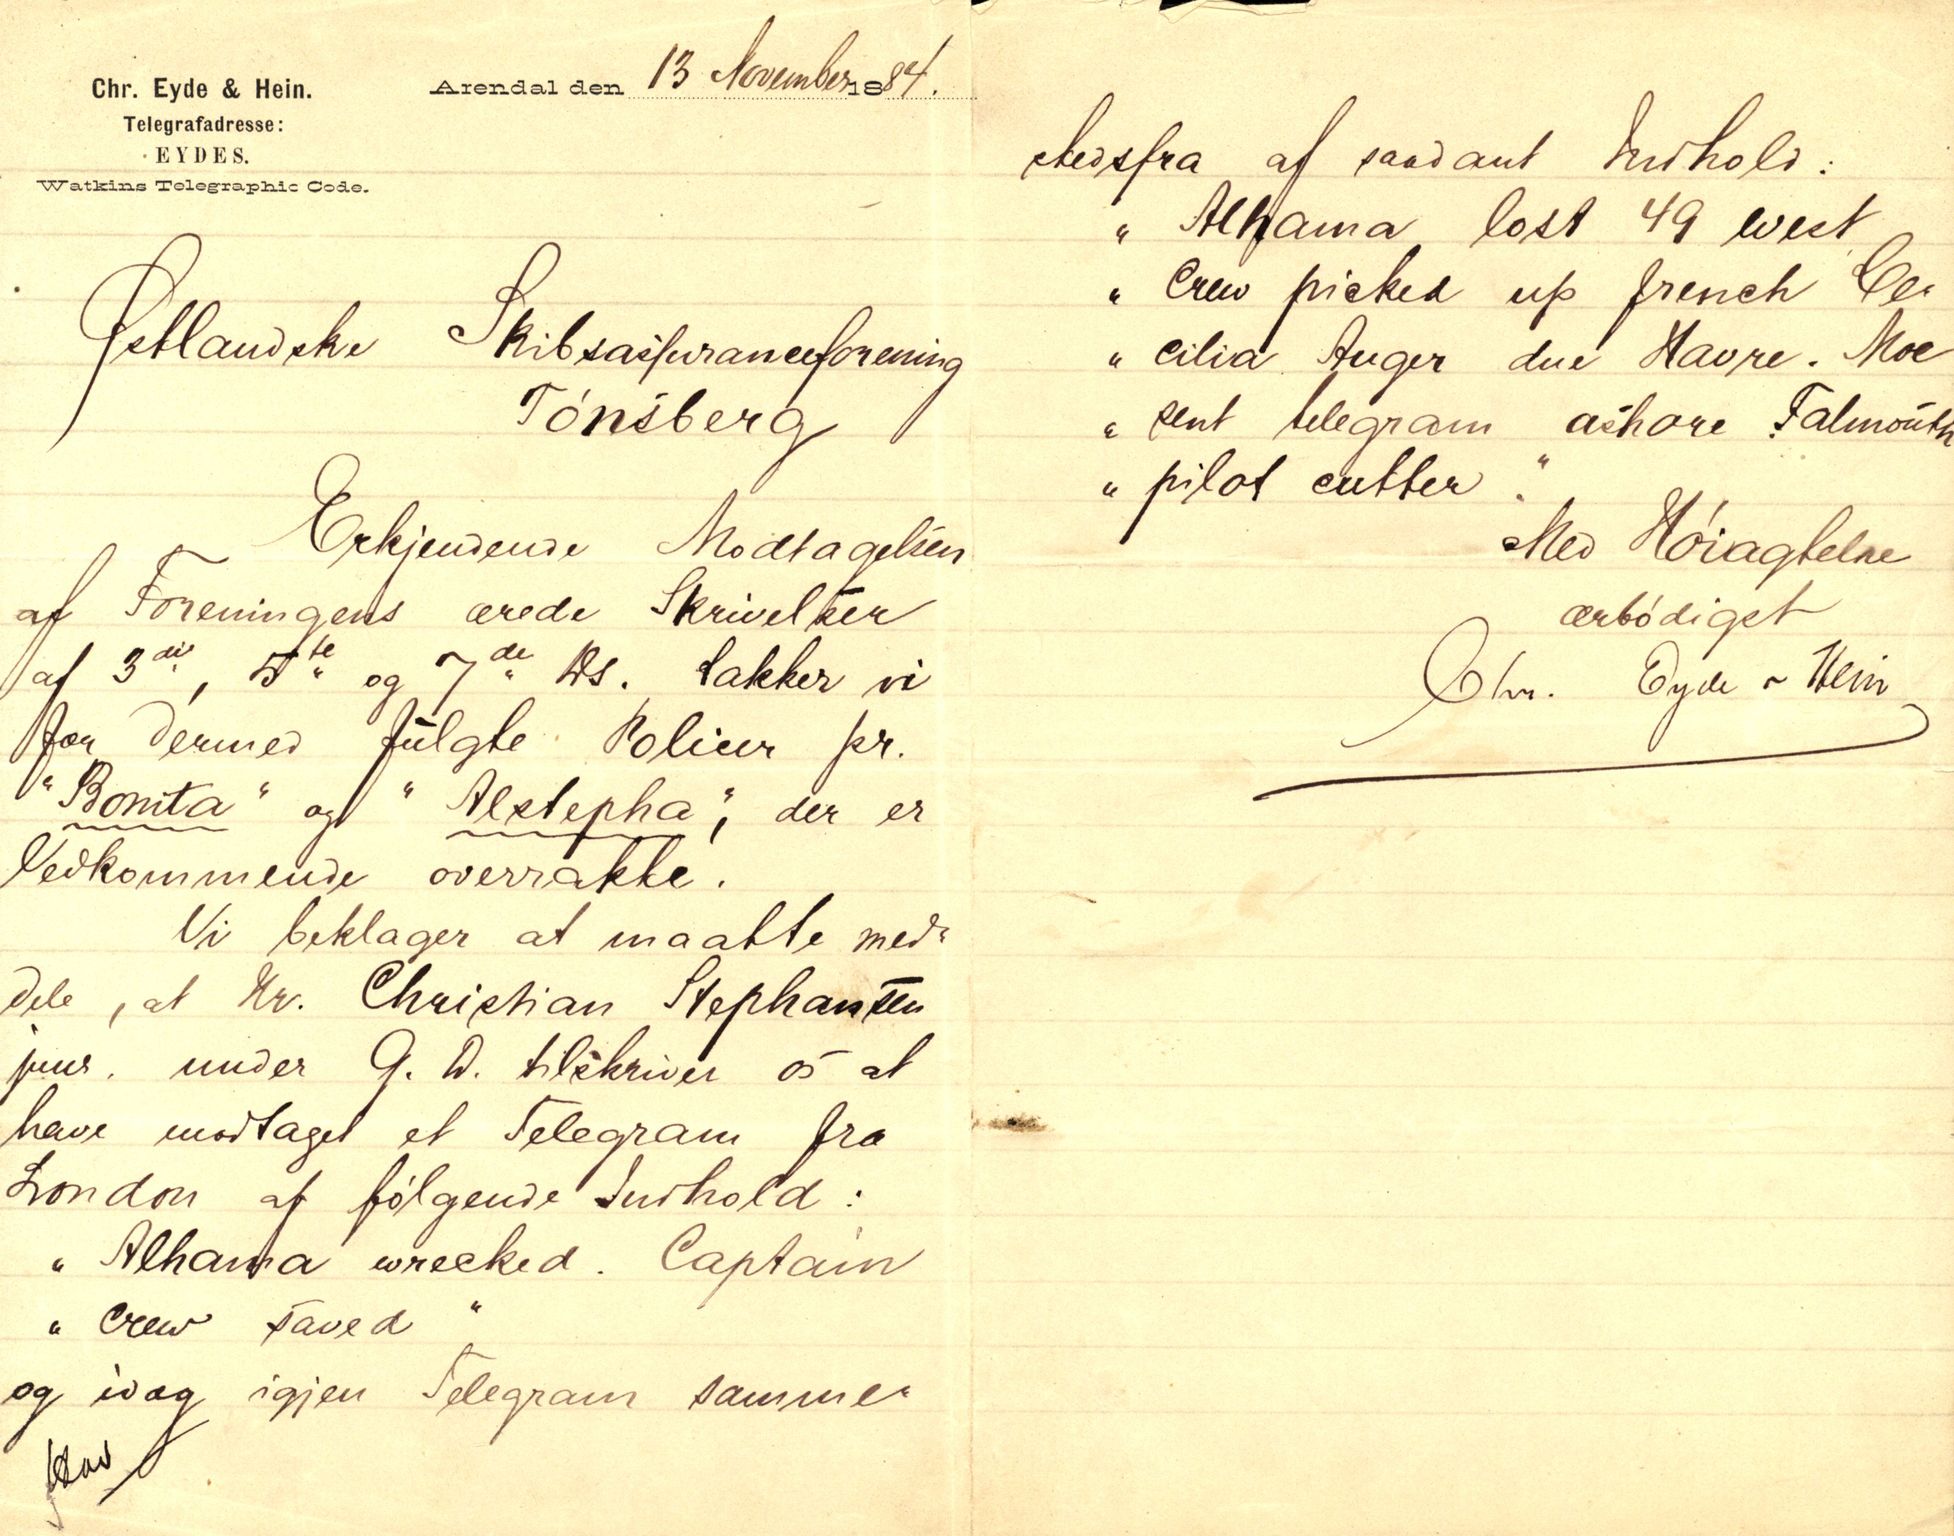 Chr. Eyde & Hein.
Telegrafadresse:
EYDES.
Watkins Telegraphic Code.
Arendal den 13 November 1884.
Østlandske Skibsassuranceforening
Tönsberg
Erkjendende Modtagelsen
af Foreningens ærede Skrivelser
af 3die, 5te og 7de ds. takker vi
for dermed fulgte Policer pr.
"Bonita" og "Alstepha", der er
Vedkommende overrakte.
Vi beklager at maatte med-
dele, at Hr. Christian Stephansen
junr. under G. D. tilskriver os at
have modtaget et Telegram fra
London af fölgende Indhold:
" Alhama wrecked. Captain
" crew saved "
og idag igjen Telegram samme-
stedsfra af saadant Indhold:
" Alhama lost 49 west
" Crew picked up french Ce-
" cilia Auger due Havre. Moe
" sent telegram ashore Falmouth
" pilot cutter."
Med Höiagtelse
ærbödigst
Chr. Eyde & Hein